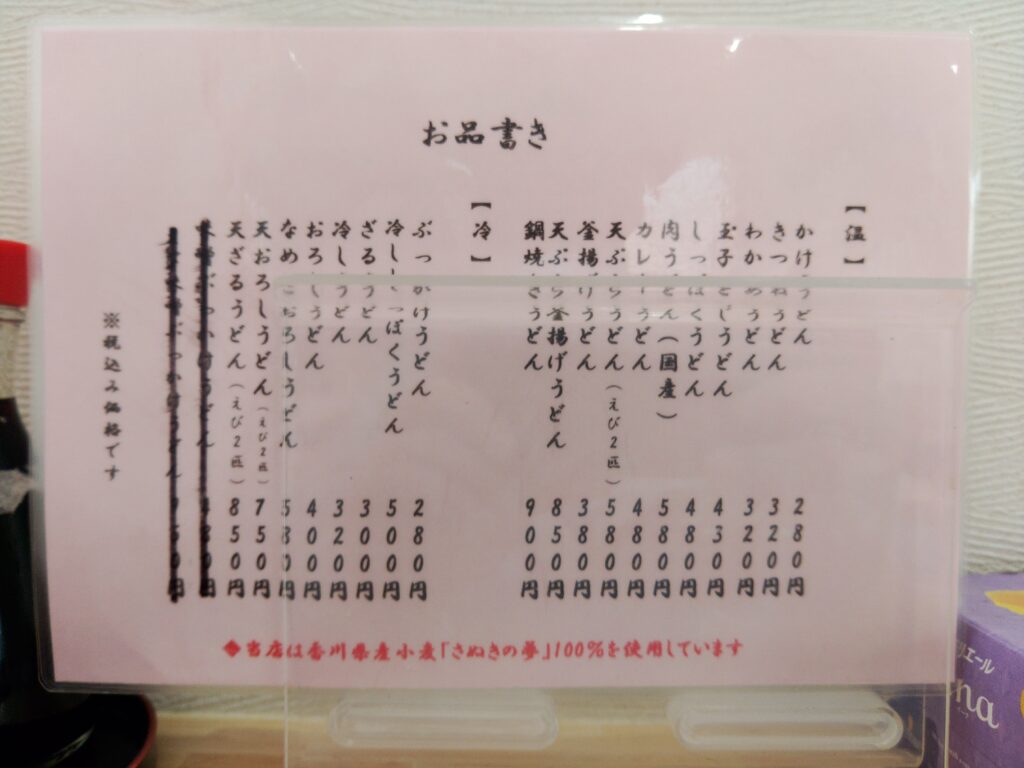 お品書き
【温】
かけうどん 280円
きつねうどん 320円
わかめうどん 320円
玉子とじうどん 430円
しっぽくうどん 480円
肉うどん(国産) 580円
カレーうどん 480円
天ぷらうどん(えび2匹) 580円
釜揚げうどん 380円
天ぷら釜揚げうどん 850円
鍋焼きうどん 900円
【冷】
ぶっかけうどん 280円
冷ししっぽくうどん 500円
ざるうどん 300円
冷しうどん 320円
おろしうどん 400円
なめこおろしうどん 580円
天おろしうどん(えび2匹) 750円
天ざるうどん(えび2匹) 850円
※税込み価格です
◆当店は香川県産小麦「さぬきの夢」100%を使用しています
リエール
na